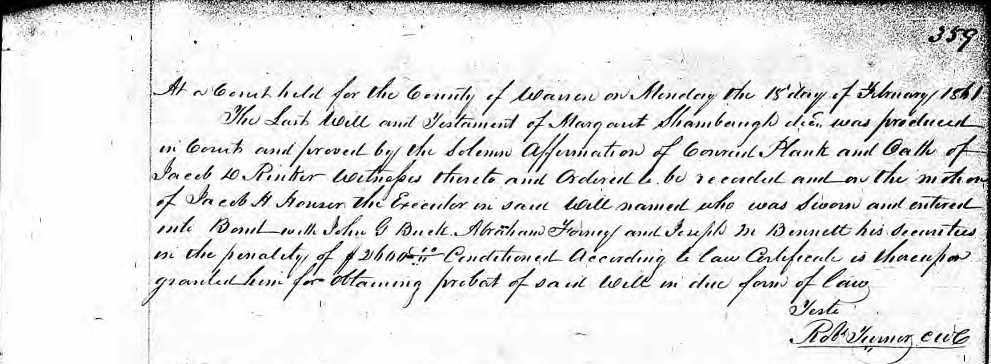 359
At a Court held for the County of Warren on Monday the 18 day of February 1861
The Last Will and Testament of Margaret Shambaugh decd. was produced
in Court and proved by the Solemn Affirmation of Conrad Plank and Oath of
Jacob D Rinker Witnesses thereto and Ordered to be recorded and on the motion
of Jacob H Houser the Executor in said Will named who was Sworn and entered
into Bond with John G Buck Abraham Forney and Joseph M Bennett his Securities
in the penalty of $2600 Conditioned According to law Certificate is thereupon
granted him for obtaining probat of said Will in due form of law
Teste
Robt Turner CWC